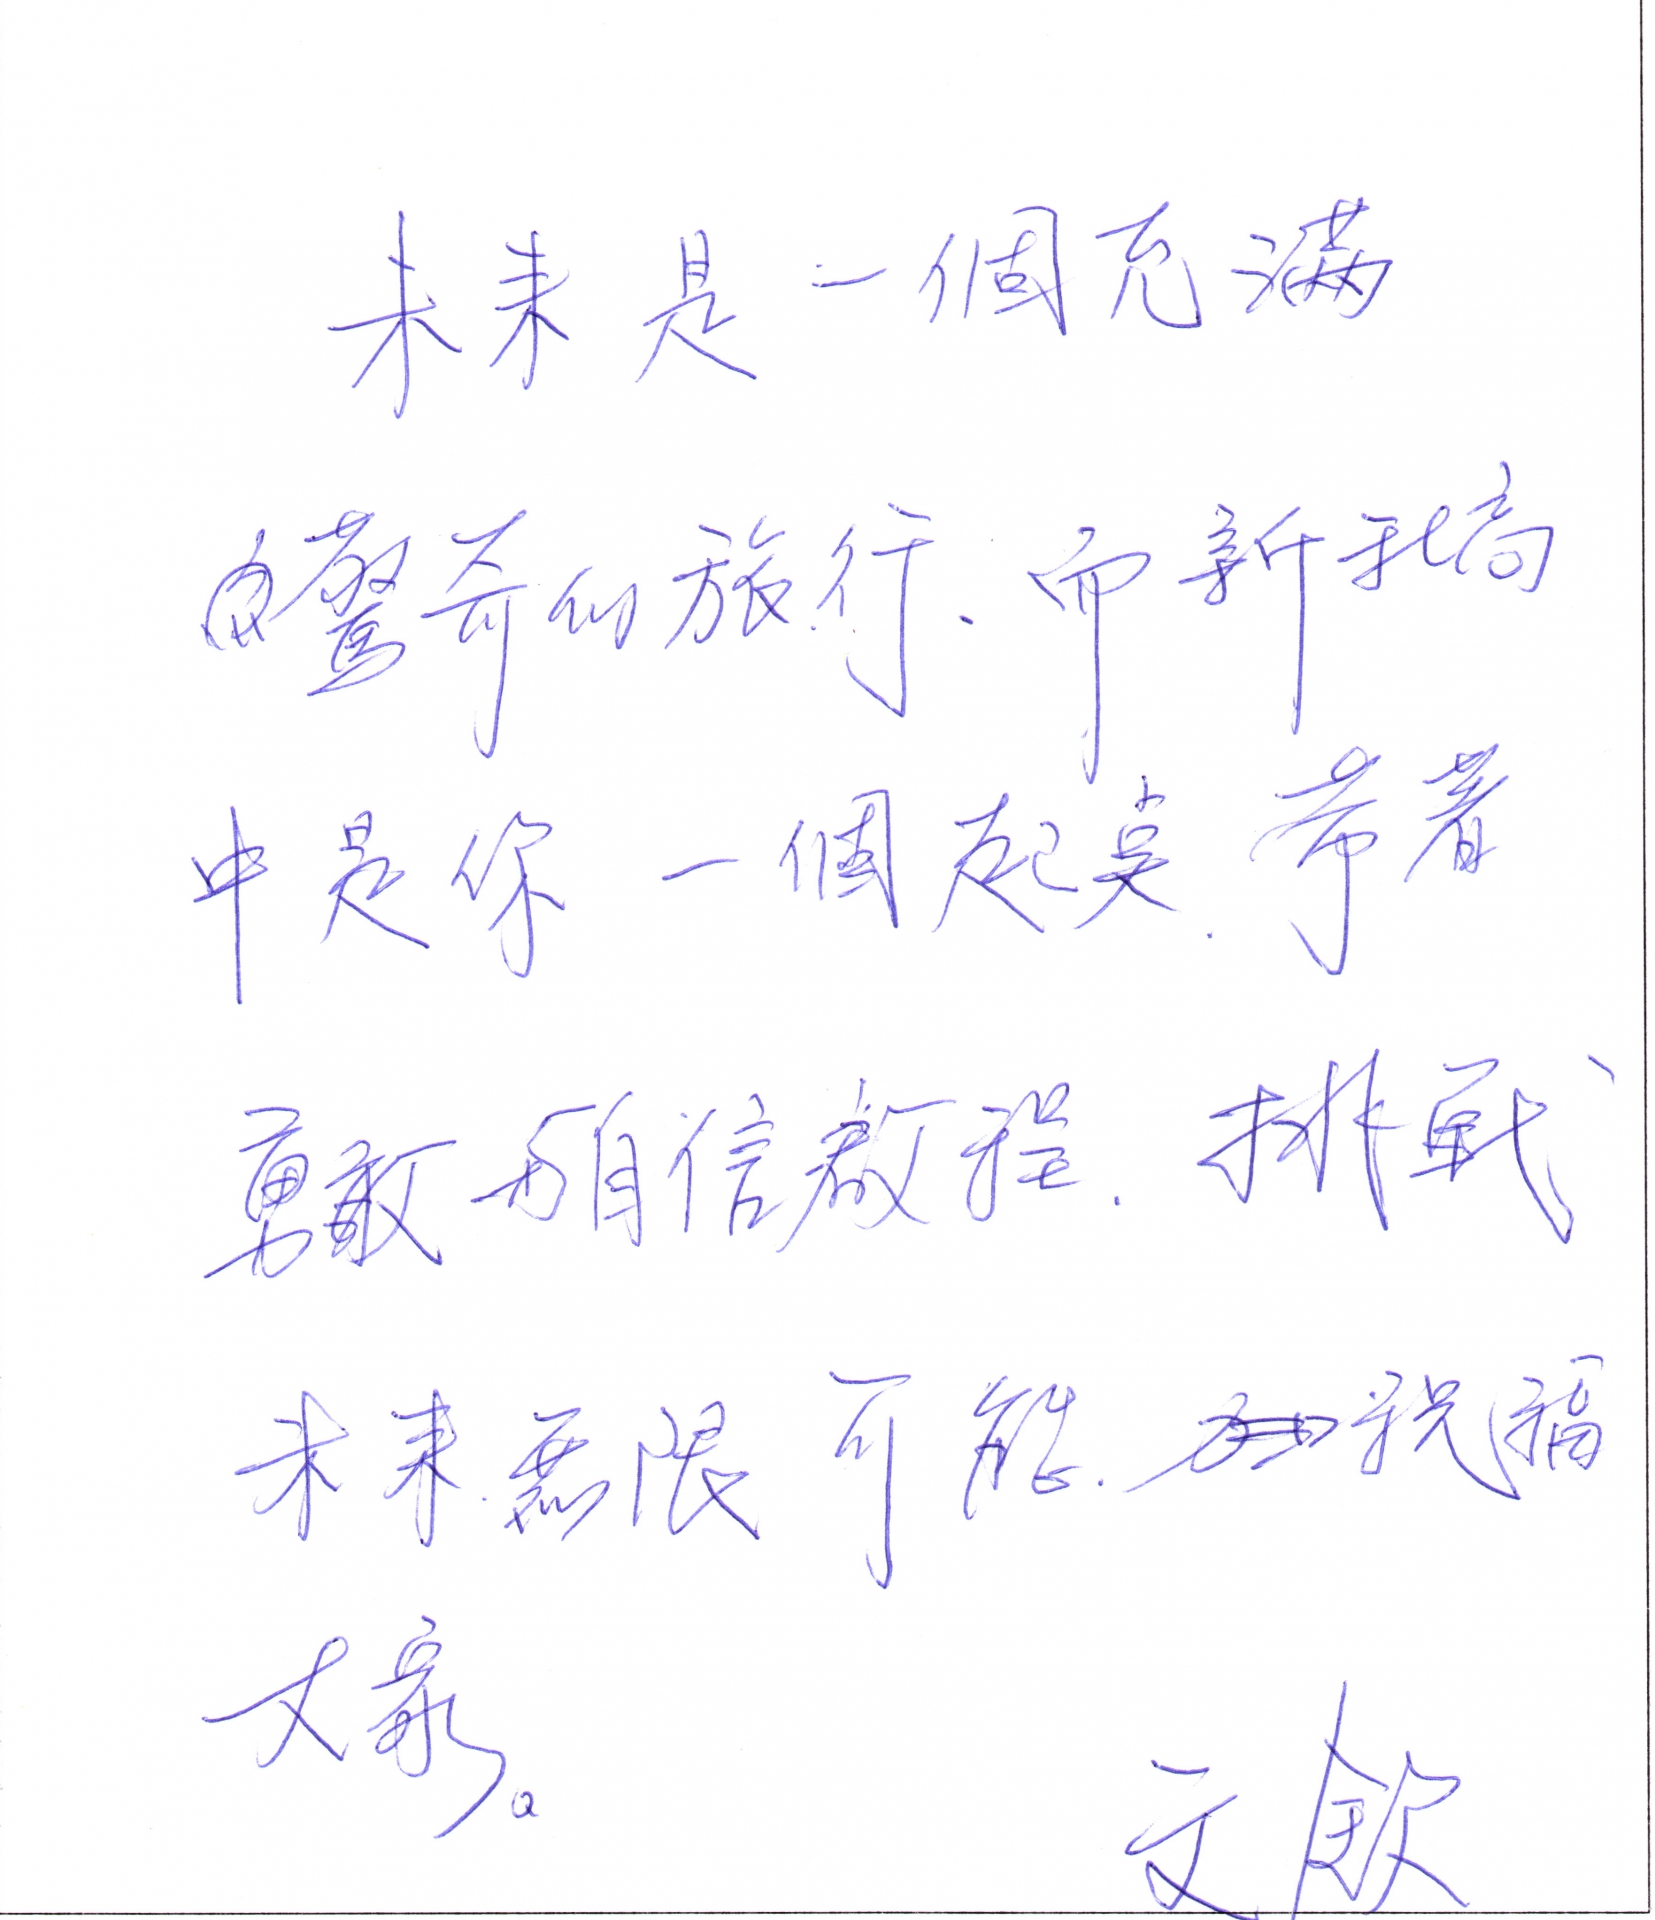 未來是一個充滿
驚奇的旅行、而新社高
中是你一個起點.帶著
勇敢與自信啟程.挑戰
未來無限可能.祝福
大家。
文欽